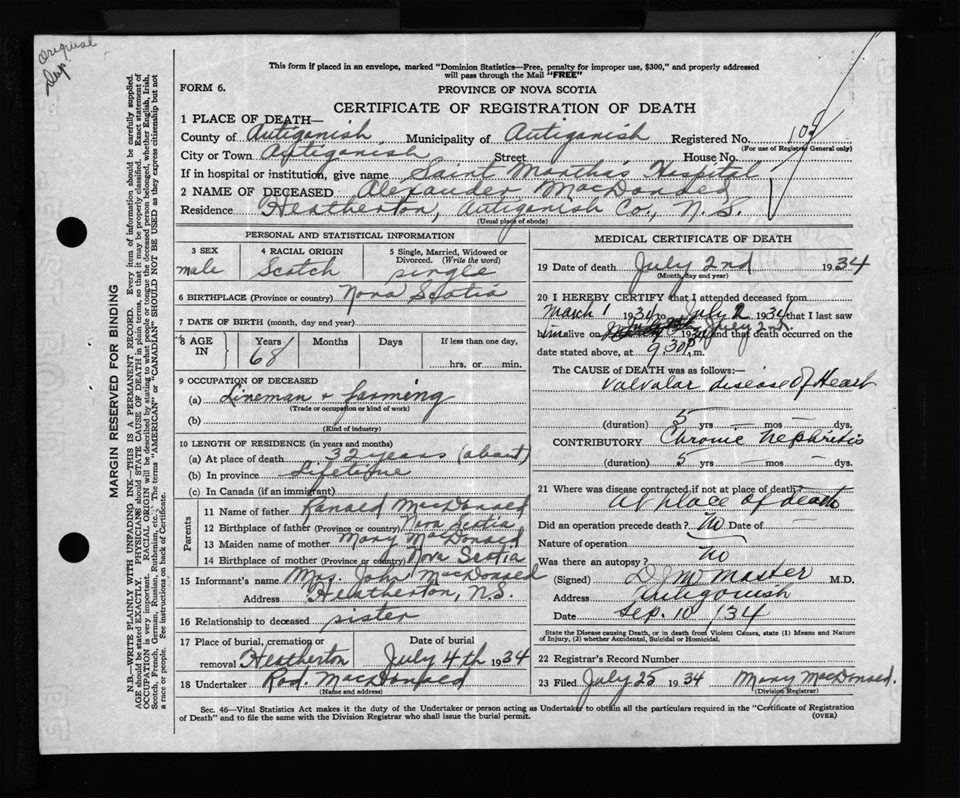 Original
Dup.
This form if placed in an envelope, marked "Dominion Statistics—Free, penalty for improper use, $300," and properly addressed
will pass through the Mail "FREE"
FORM 6.
PROVINCE OF NOVA SCOTIA
CERTIFICATE OF REGISTRATION OF DEATH
1 PLACE OF DEATH—
County of Antigonish Municipality of Antigonish Registered No. 103
(For use of Registrar General only)
City or Town Antigonish Street House No.
If in hospital or institution, give name Saint Martha's Hospital
2 NAME OF DECEASED Alexander MacDonald
Residence Heatherton, Antigonish Co., N.S.
(Usual place of abode)
MARGIN RESERVED FOR BINDING
N.B.—WRITE PLAINLY WITH UNFADING INK—THIS IS A PERMANENT RECORD. Every item of information should be carefully supplied.
AGE should be stated EXACTLY. PHYSICIANS should STATE CAUSE OF DEATH in plain terms, so that it may be properly classified. Exact statement of
OCCUPATION is very important. RACIAL ORIGIN will be described by stating to what people or tongue the deceased person belonged, whether English, Irish,
Scotch, French, German, Russian, Ruthenian, etc. The terms "AMERICAN" or "CANADIAN" SHOULD NOT BE USED as they express citizenship but not
a race or people. See instructions on back of Certificate.
PERSONAL AND STATISTICAL INFORMATION
3 SEX
male
4 RACIAL ORIGIN
Scotch
5 Single, Married, Widowed or
Divorced. (Write the word)
single
6 BIRTHPLACE (Province or country) Nova Scotia
7 DATE OF BIRTH (month, day, and year)
8 AGE IN
Years Months Days If less than one day,
68
hrs. or min.
9 OCCUPATION OF DECEASED
(a) Lineman & farming
(Trade or occupation or kind of work)
(b)
(Kind of industry)
10 LENGTH OF RESIDENCE (in years and months)
(a) At place of death 32 years (about)
(b) In province Lifetime
(c) In Canada (if an immigrant)
Parents
11 Name of father Ranald MacDonald
12 Birthplace of father (Province or country) Nova Scotia
13 Maiden name of mother Mary MacDonald
14 Birthplace of mother (Province or country) Nova Scotia
15 Informant's name Mrs. John MacDonald
Address Heatherton, N.S.
16 Relationship to deceased sister
17 Place of burial, cremation or
removal Heatherton
Date of burial
July 4th 1934
18 Undertaker Rod. MacDonald
(Name and address)
MEDICAL CERTIFICATE OF DEATH
19 Date of death July 2nd 1934
(Month, day and year)
20 I HEREBY CERTIFY that I attended deceased from
March 1 1931 to July 2 1934 that I last saw
him alive on July 2nd and that death occurred on the
date stated above, at 9 30 p.m.
The CAUSE OF DEATH was as follows:
Valvular disease of Heart
(duration) 5 yrs — mos — dys.
CONTRIBUTORY Chronic Nephritis
(duration) 5 yrs — mos — dys.
21 Where was disease contracted, if not at place of death?
At place of death
Did an operation precede death? no Date of —
Nature of operation
Was there an autopsy? no
(Signed) M.D.
Address Antigonish
Date Sep. 10 / 34
State the Disease causing Death, or in death from Violent Causes, state (1) Means and Nature
of Injury, (2) whether Accidental, Suicidal or Homicidal.
22 Registrar's Record Number
23 Filed July 25 1934 Mary MacDonald.
(Division Registrar)
Sec. 46—Vital Statistics Act makes it the duty of the Undertaker or person acting as Undertaker to obtain all the particulars required in the "Certificate of Registration
of Death" and to file the same with the Division Registrar who shall issue the burial permit.
(OVER)